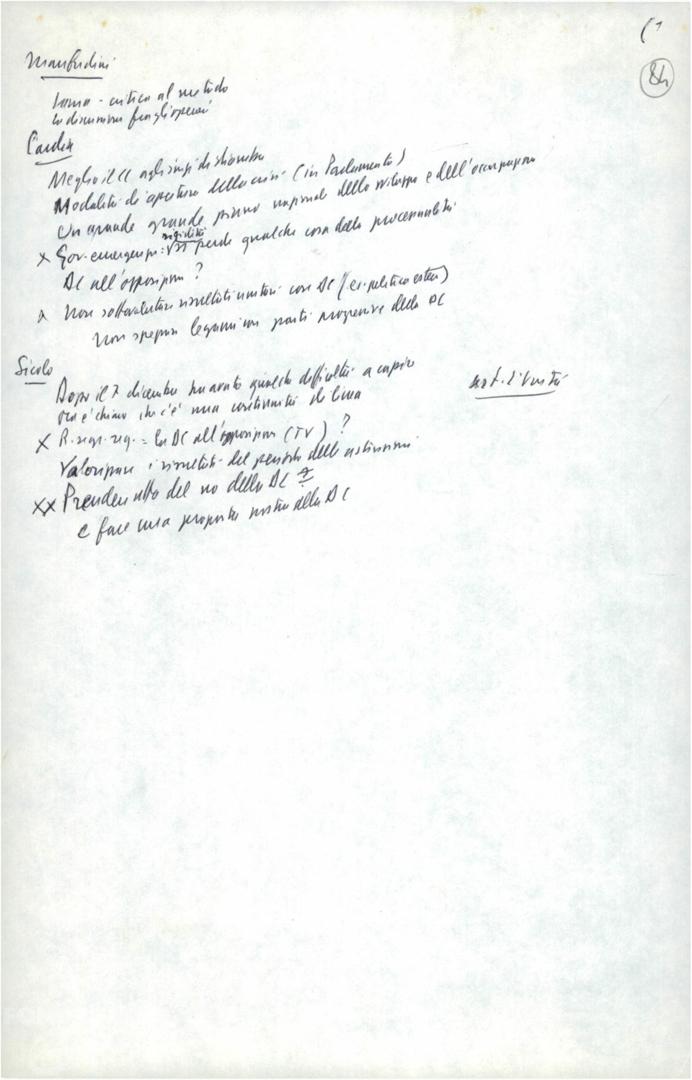 84
Manfredini
Lama - critica al metodo
la discussione fra gli operai
Cardia
Meglio il CC agli inizi di dicembre
Modalità di apertura della crisi (in Parlamento)
Un grande grande piano nazionale dello sviluppo e dell'occupazione
x Gov. emergenza: rigidità perde qualche cosa della processualità
DC all'opposizione?
x Non sottovalutare risultati unitari con DC (es. politica estera)
Non spezzare legami con parti progressive della DC
Sicolo
Dopo il 7 dicembre ha avuto qualche difficoltà a capire
ora è chiaro che c'è una continuità di linea
x = la DC all'opposizione (TV)?
Valorizzare i risultati del periodo delle astensioni
xx Prendere atto del no della DC
e fare una proposta nostra alla DC